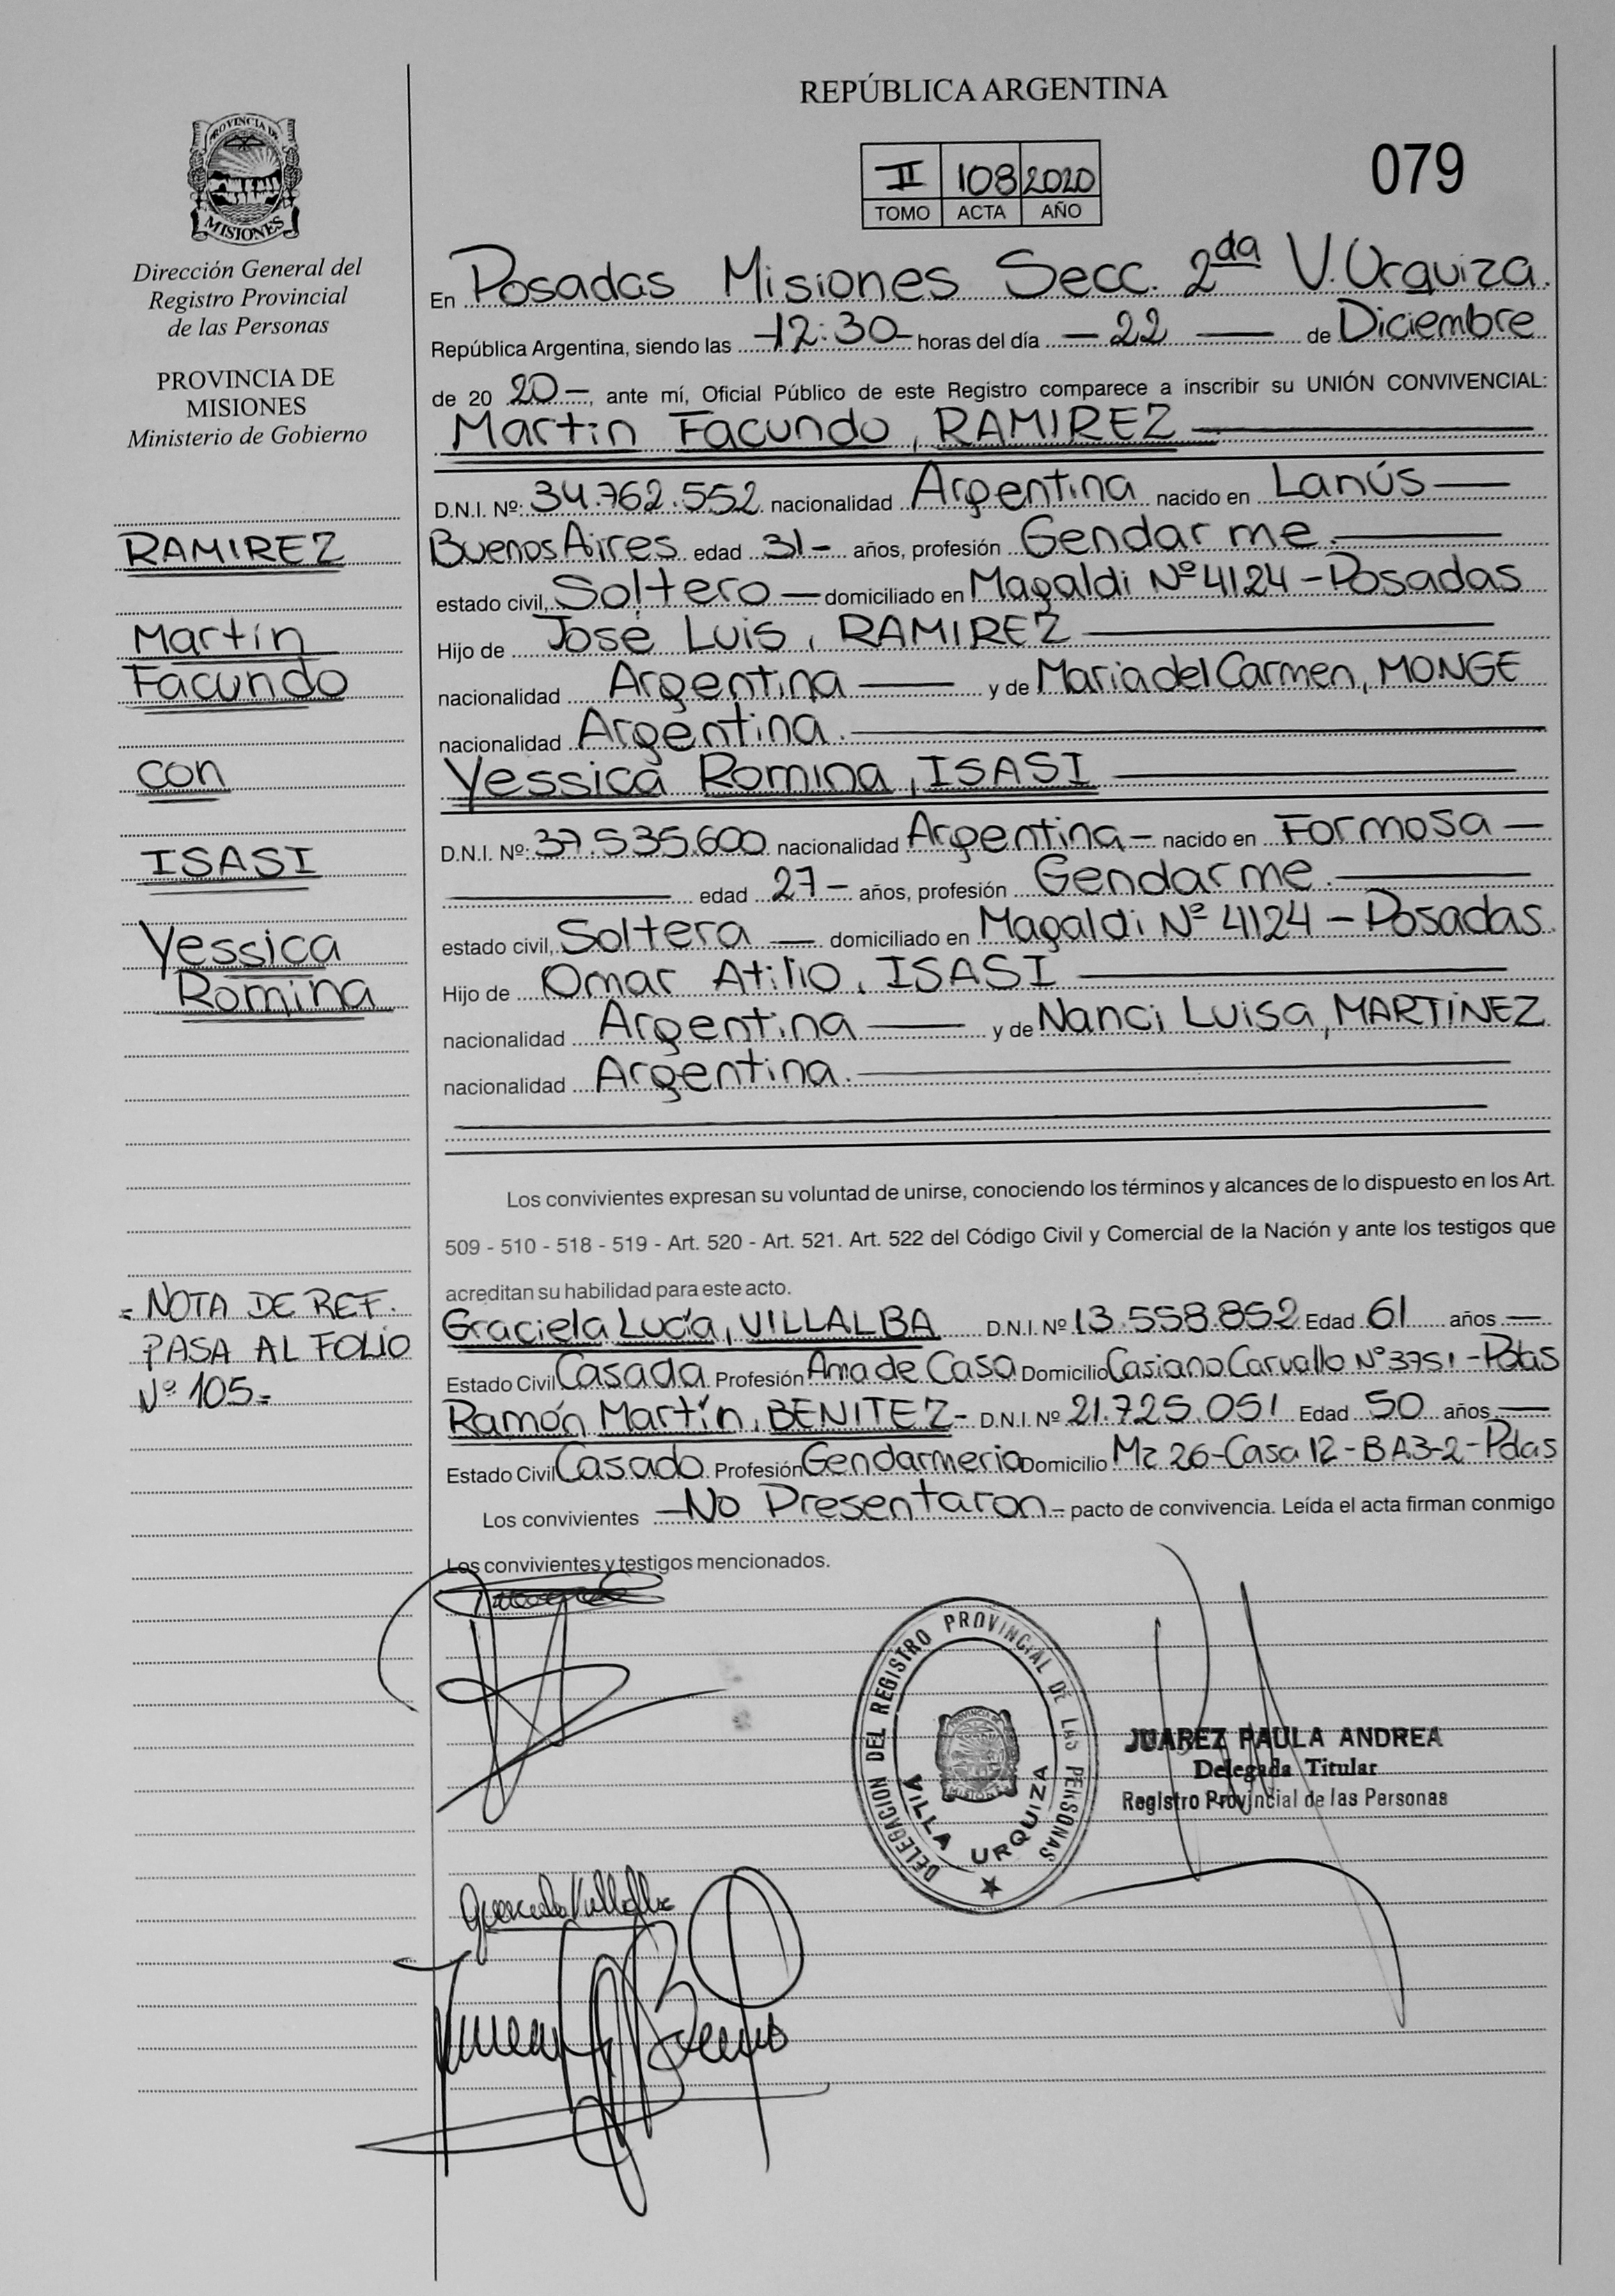 REPÚBLICA ARGENTINA
II 108 2020
TOMO ACTA AÑO
079
PROVINCIA DE
MISIONES
Dirección General del
Registro Provincial
de las Personas
PROVINCIA DE
MISIONES
Ministerio de Gobierno
RAMIREZ
Martín
Facundo
con
ISASI
Yessica
Romina
= NOTA DE REF.
PASA AL FOLIO
Nº 105=
En Posadas Misiones Secc. 2da V. Urquiza.
República Argentina, siendo las -12:30- horas del día - 22 — de Diciembre
de 20 20 -, ante mí, Oficial Público de este Registro comparece a inscribir su UNIÓN CONVIVENCIAL:
Martin Facundo, RAMIREZ —
D.N.I. Nº: 34.762.552 nacionalidad Argentina nacido en Lanús —
Buenos Aires edad 31- años, profesión Gendarme. —
estado civil, Soltero — domiciliado en Magaldi Nº 4124 - Posadas
Hijo de José Luis, RAMIREZ —
nacionalidad Argentina — y de Maria del Carmen, MONGE
nacionalidad Argentina. —
Yessica Romina, ISASI —
D.N.I. Nº: 37.535.600 nacionalidad Argentina - nacido en Formosa —
— edad 27- años, profesión Gendarme. —
estado civil, Soltera — domiciliado en Magaldi Nº 4124 - Posadas.
Hijo de Omar Atilio, ISASI —
nacionalidad Argentina — y de Nanci Luisa, MARTÍNEZ
nacionalidad Argentina. —
Los convivientes expresan su voluntad de unirse, conociendo los términos y alcances de lo dispuesto en los Art.
509 - 510 - 518 - 519 - Art. 520 - Art. 521. Art. 522 del Código Civil y Comercial de la Nación y ante los testigos que
acreditan su habilidad para este acto.
Graciela Lucía, VILLALBA D.N.I. Nº 13.558.852 Edad 61 años —
Estado Civil Casada Profesión Ama de Casa Domicilio Casiano Carvallo Nº 3751 - Pdas
Ramón Martín, BENITEZ - D.N.I. Nº 21.725.051 Edad 50 años —
Estado Civil Casado Profesión Gendarmeria Domicilio Mz 26-Casa 12-BA3-2-Pdas
Los convivientes -No Presentaron- pacto de convivencia. Leída el acta firman conmigo
Los convivientes y testigos mencionados.
DELEGACION DEL REGISTRO PROVINCIAL DE LAS PERSONAS
PROVINCIA DE
MISIONES
VILLA URQUIZA
JUAREZ PAULA ANDREA
Delegada Titular
Registro Provincial de las Personas
Graciela Villalba